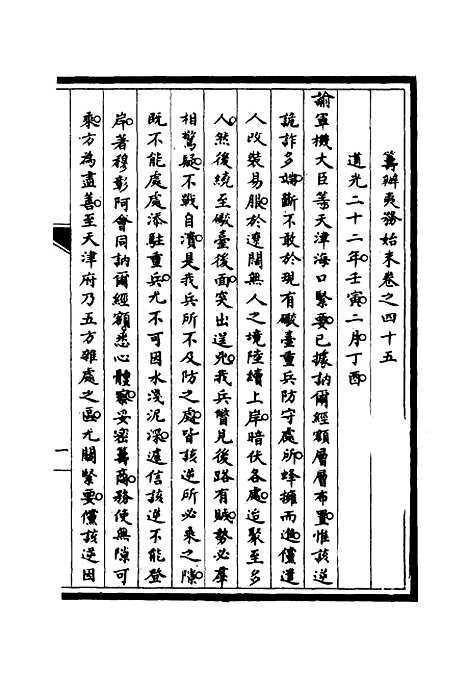 籌辦夷務始末卷之四十五
道光二十二年壬寅二月丁酉
諭軍機大臣等天津海口緊要已據訥爾經額層層布置惟該逆
詭詐多端斷不敢於現有礮臺重兵防守處所蜂擁而進儻遣
人改裝易服於遼闊無人之境陸續上岸暗伏各處迨聚至多
人然後繞至礮臺後面突出逞兇我兵瞥見後路有賊勢必羣
相驚疑不戰自潰是我兵所不及防之處皆該逆所必乘之隙
既不能處處添駐重兵尤不可因水淺泥深遽信該逆不能登
岸著穆彰阿會同訥爾經額悉心體察妥密籌商務使無隙可
乘方為盡善至天津府乃五方雜處之區尤關緊要儻該逆因
一